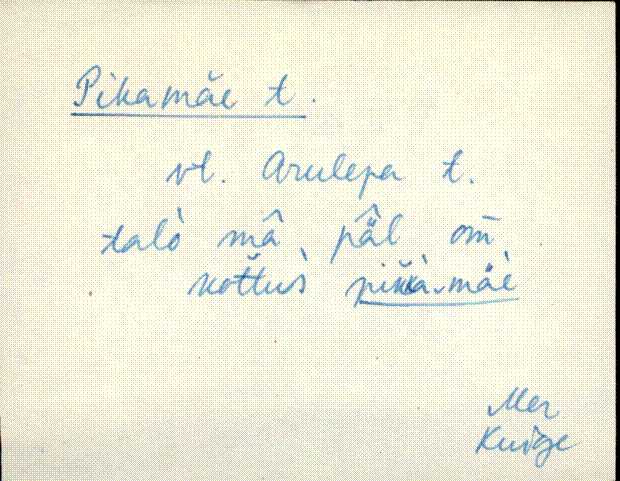 Pikamäe t.
vt. Arulepa t.
talò mâ pä̂l om̄
kottus̀ pikkà-mäè
Mer
Kuige